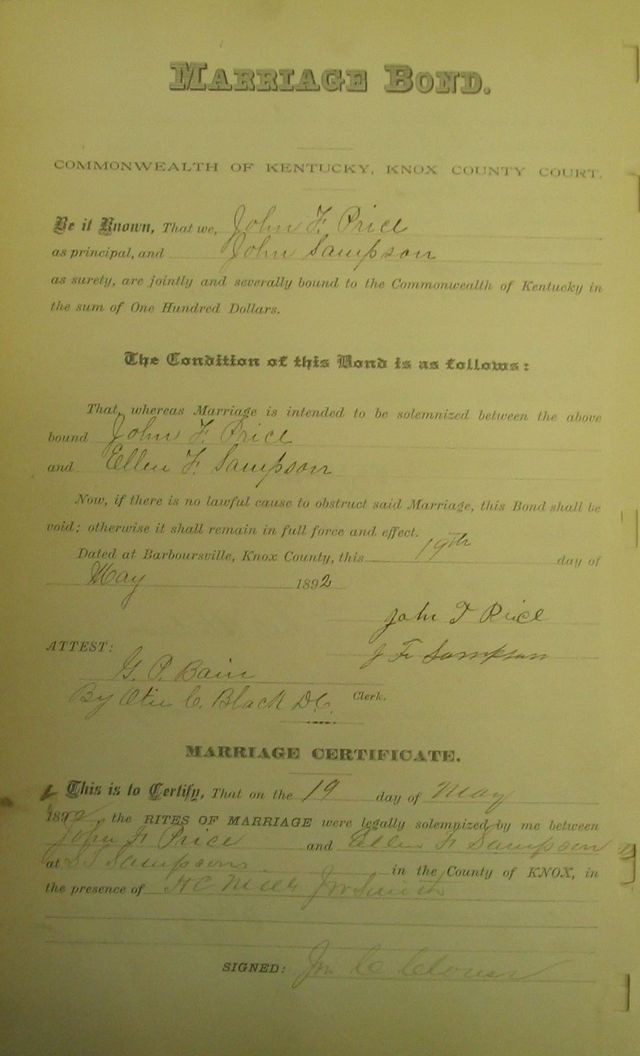 MARRIAGE BOND.
COMMONWEALTH OF KENTUCKY, KNOX COUNTY COURT.
Be it Known, That we, John F. Price
as principal, and John Sampson
as surety, are jointly and severally bound to the Commonwealth of Kentucky in
the sum of One Hundred Dollars.
The Condition of this Bond is as follows:
That, whereas Marriage is intended to be solemnized between the above
bound John F. Price
and Ellen F. Sampson
Now, if there is no lawful cause to obstruct said Marriage, this Bond shall be
void; otherwise it shall remain in full force and effect.
Dated at Barboursville, Knox County, this 19th day of
May 1892
John F Price
ATTEST: J F Sampson
G. P. Bain
By Otis C. Black D.C. Clerk.
MARRIAGE CERTIFICATE.
This is to Certify, That on the 19 day of May
1892 the RITES OF MARRIAGE were legally solemnized by me between
John F Price and Ellen F Sampson
at Sampsons in the County of KNOX, in
the presence of H C Smith
SIGNED: Jn C